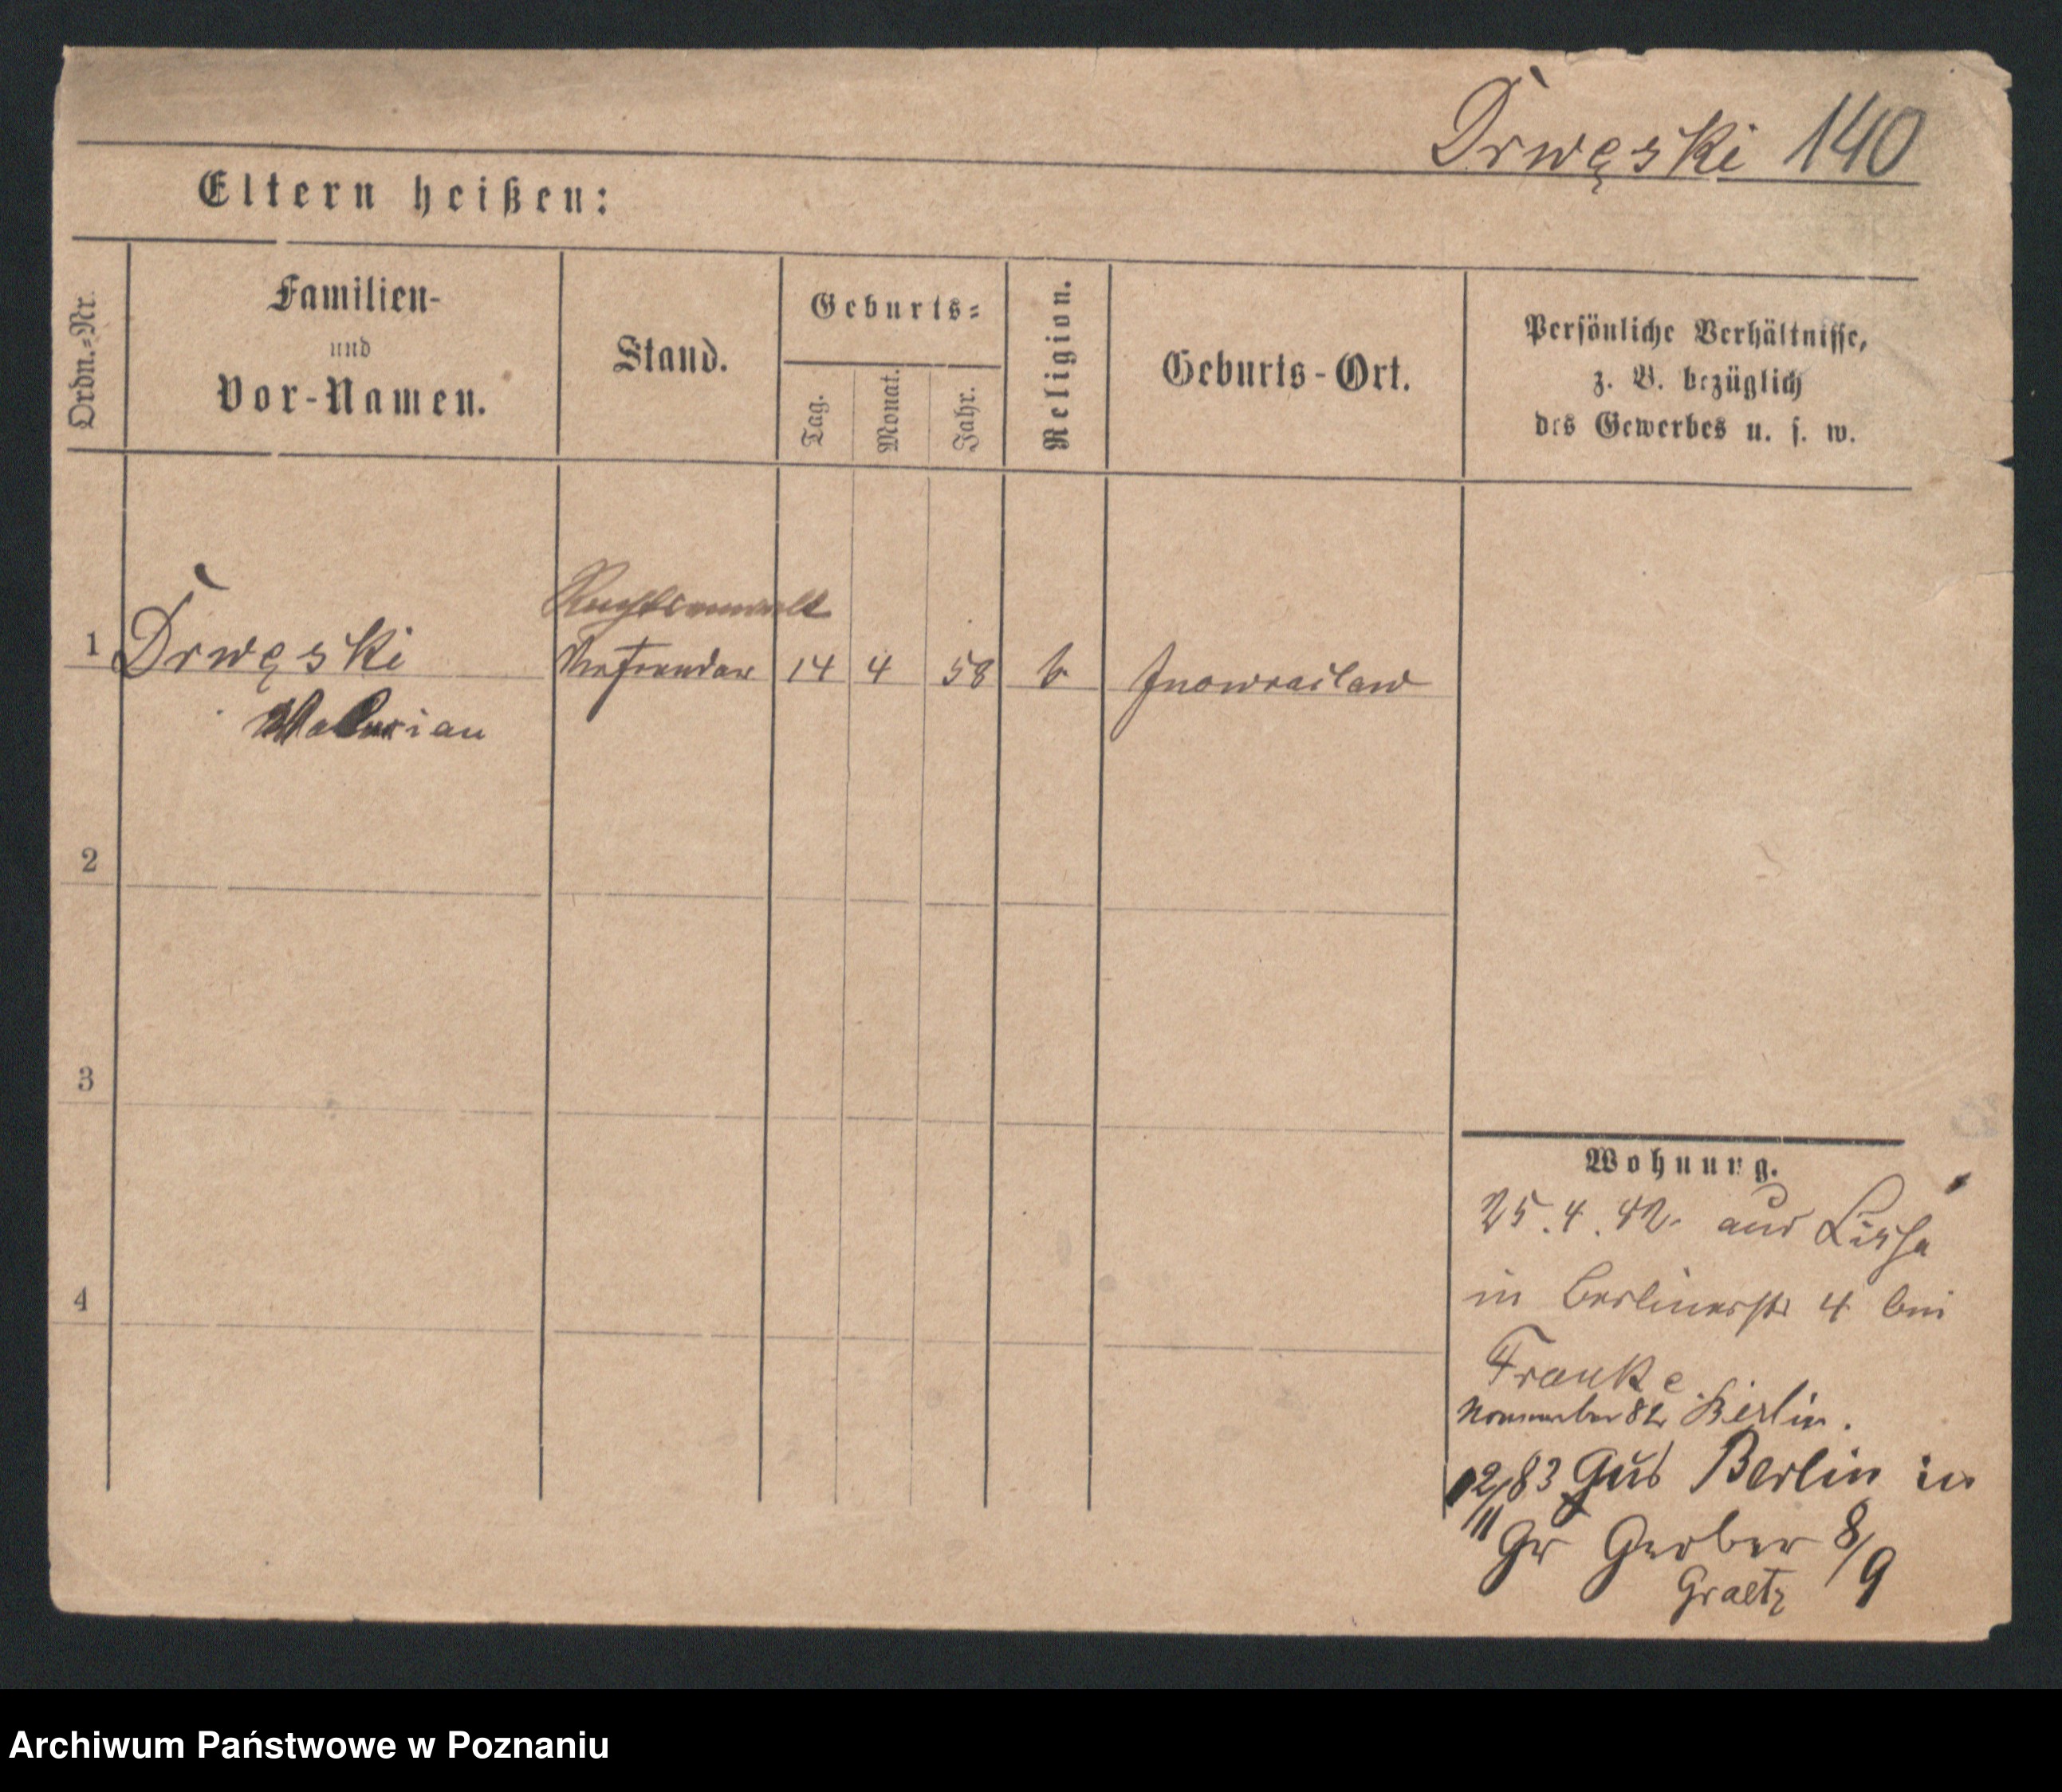 Drwęski 140
Eltern heißen:
Ordn.-Nr.
Familien-
und
Vor-Namen.
Stand.
Geburts-
Tag.
Monat.
Jahr.
Religion.
Geburts-Ort.
Persönliche Verhältnisse,
z. B. bezüglich
des Gewerbes u. s. w.
Rechtsanwalt
1 Drwęski Referendar 14 4 58 k Inowraclaw
Valerian
2
3
4
Wohnung.
25. 4. 82. aus Lissa
in Berlinerstr 4 bei
Franke
November 82 Berlin.
12/11 83 Aus Berlin in
Gr Gerber 8/9
Graetz
Archiwum Państwowe w Poznaniu